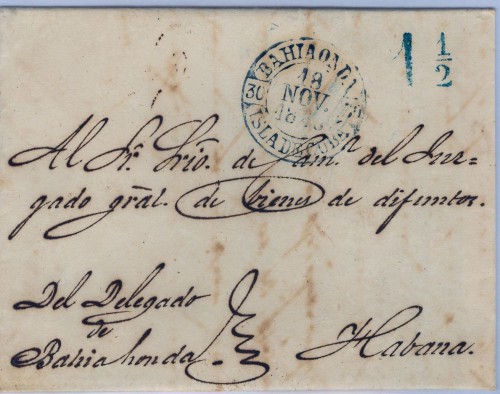 BAHIAONDA
30
18
NOV.
18
ISLA DE CUBA
1 1/2
Al Sr. Srio. de Camª del Juz=
gado gral. de bienes de difuntos.
Del Delegado
de
Bahia honda
Habana.